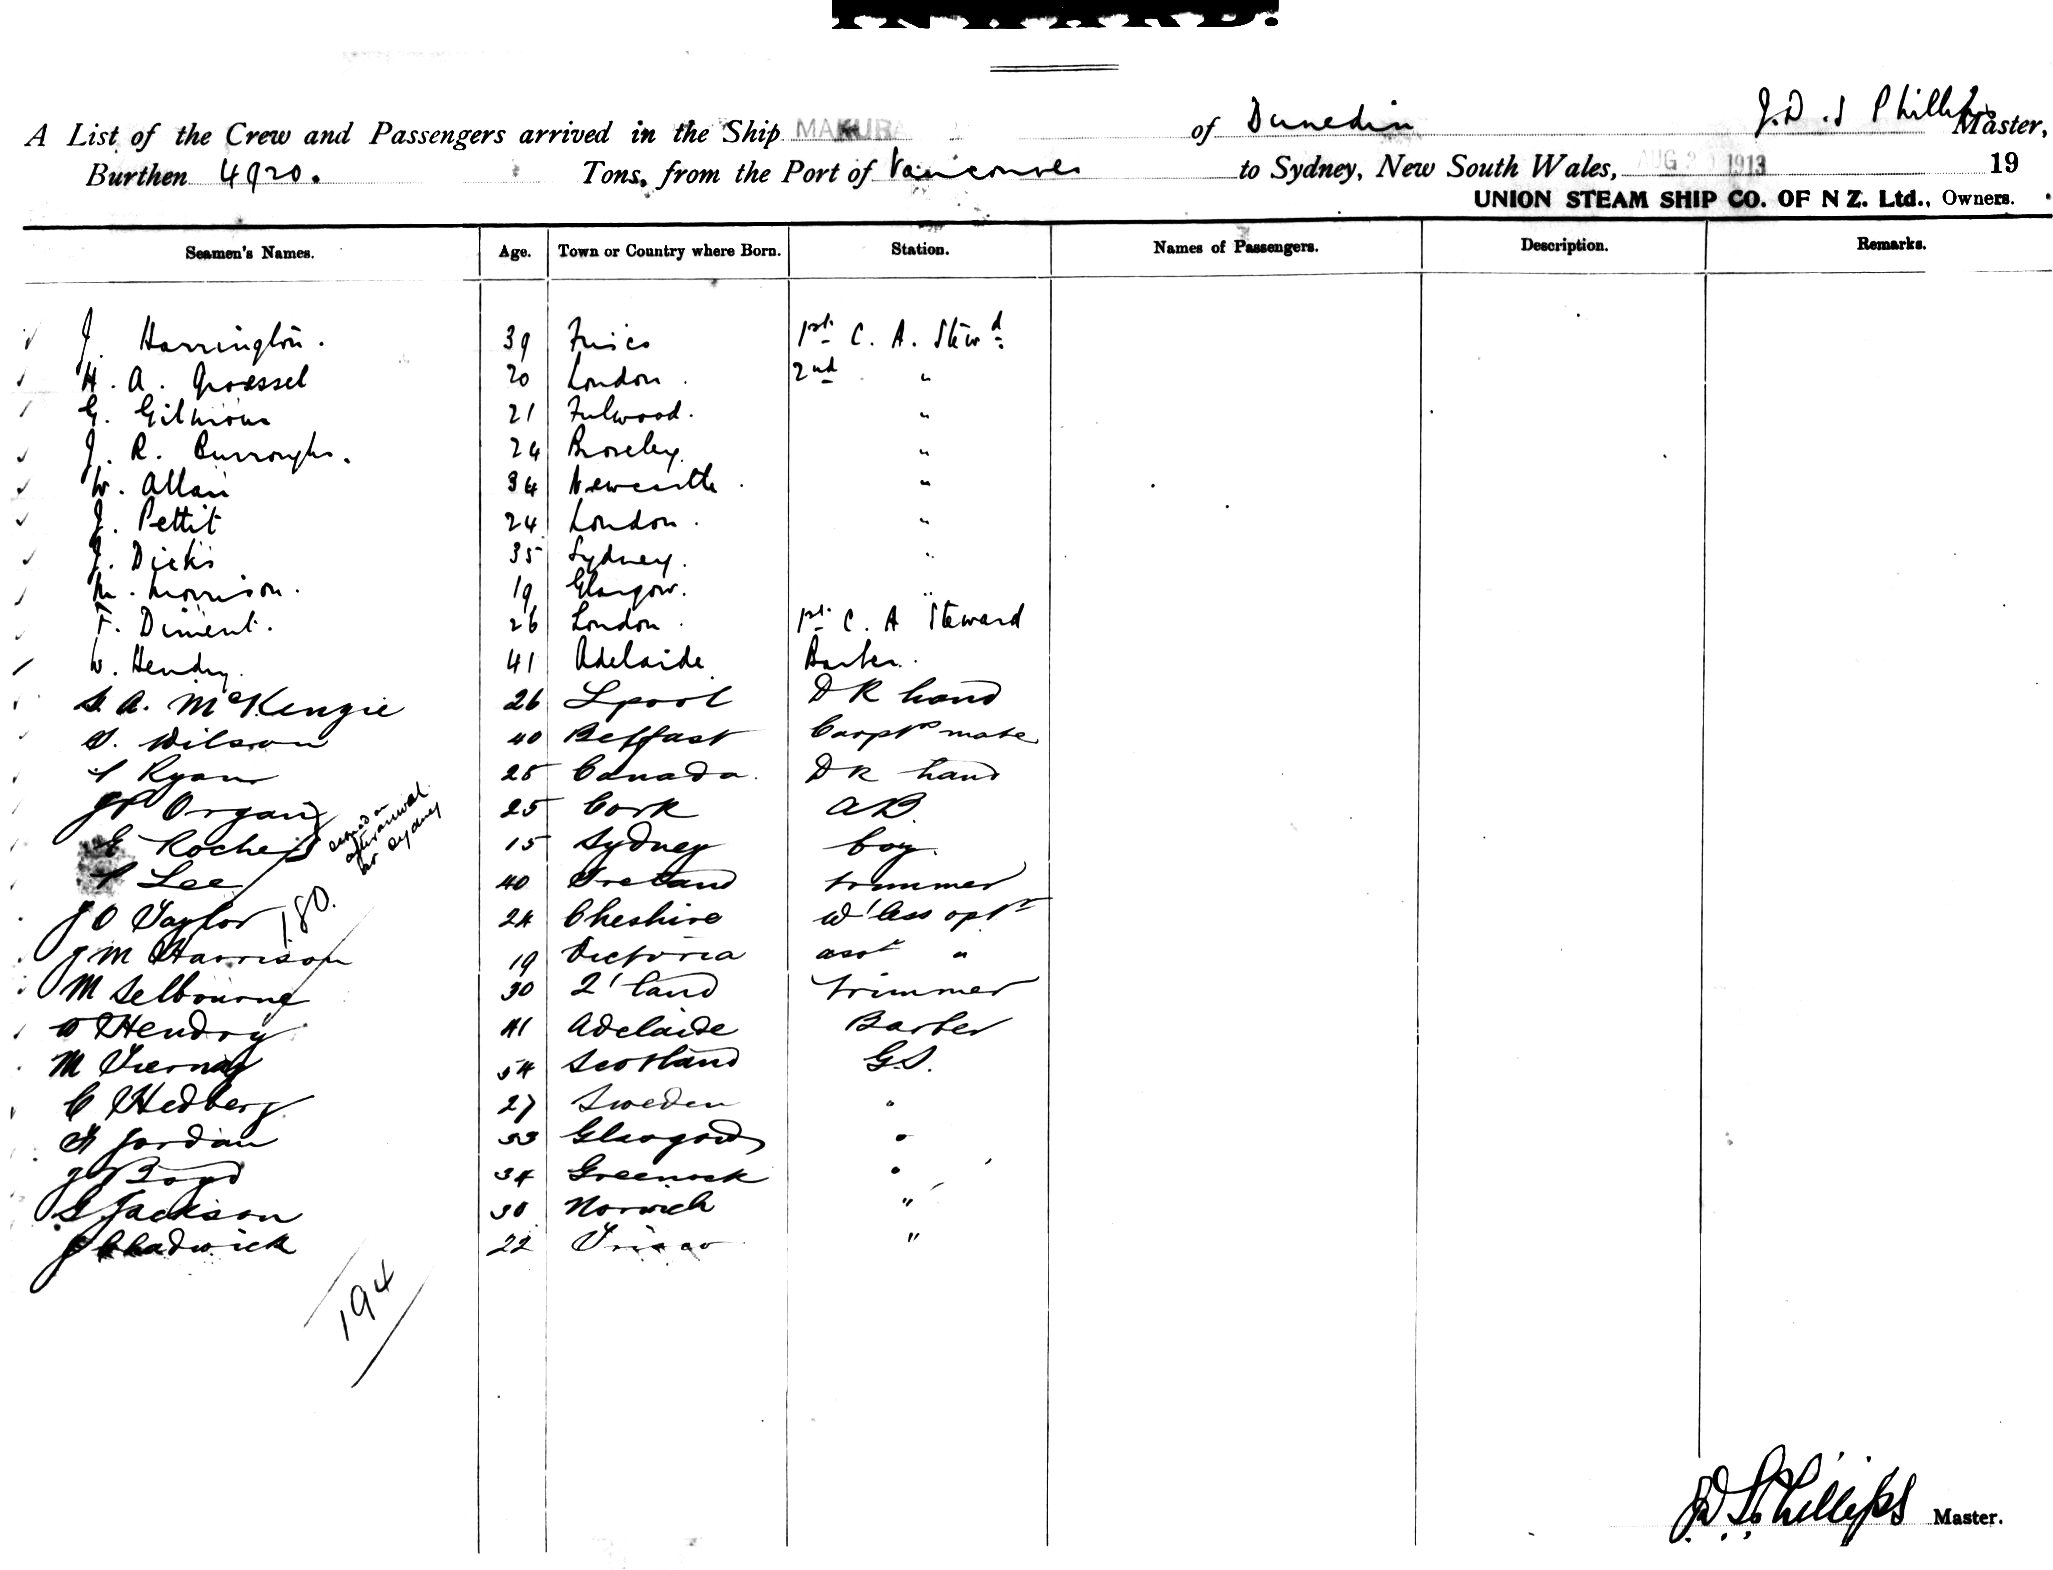 INWARD.
A List of the Crew and Passengers arrived in the Ship MAKURA of Dunedin J. D. S Phillips Master,
Burthen 4920. Tons, from the Port of Vancouver to Sydney, New South Wales, AUG 1913 19
UNION STEAM SHIP CO. OF N Z. Ltd., Owners.
Seamen's Names. Age. Town or Country where Born. Station. Names of Passengers. Description. Remarks.
J. Harrington. 39 Frisco 1st C. A. Stewd
H. A. Groessel 20 London. 2nd "
G. Gilmour 21 Fulwood. "
J. R. Burroughs. 24 Broseley. "
W. Allan 34 Newcastle. "
J. Pettit 24 London. "
J. Dicks 35 Sydney. "
M. Morrison. 19 Glasgow. "
F. Diment. 26 London. 1st C. A Steward
W. Hendry. 41 Adelaide Barber.
A. McKenzie 26 Lpool D R hand
S. Wilson 40 Belfast Carptrs mate
Ryan 25 Canada. D R hand
Organ 25 Cork A B.
E Roche 15 Sydney boy.
after arrival
at Sydney
Lee 40 Ireland trimmer
J O Taylor 24 Cheshire W'less optr
180.
J M Harrison 19 Victoria asst "
M Selbourne 30 Z'land trimmer
W Hendry 41 Adelaide Barber
M Tierney 54 Scotland G.S.
C Hedberg 27 Sweden "
Jordan 33 Glasgow "
J Boyd 34 Greenock "
S Jackson 30 Norwich "
J Chadwick 22 Frisco "
194
J. D. S. Phillips Master.